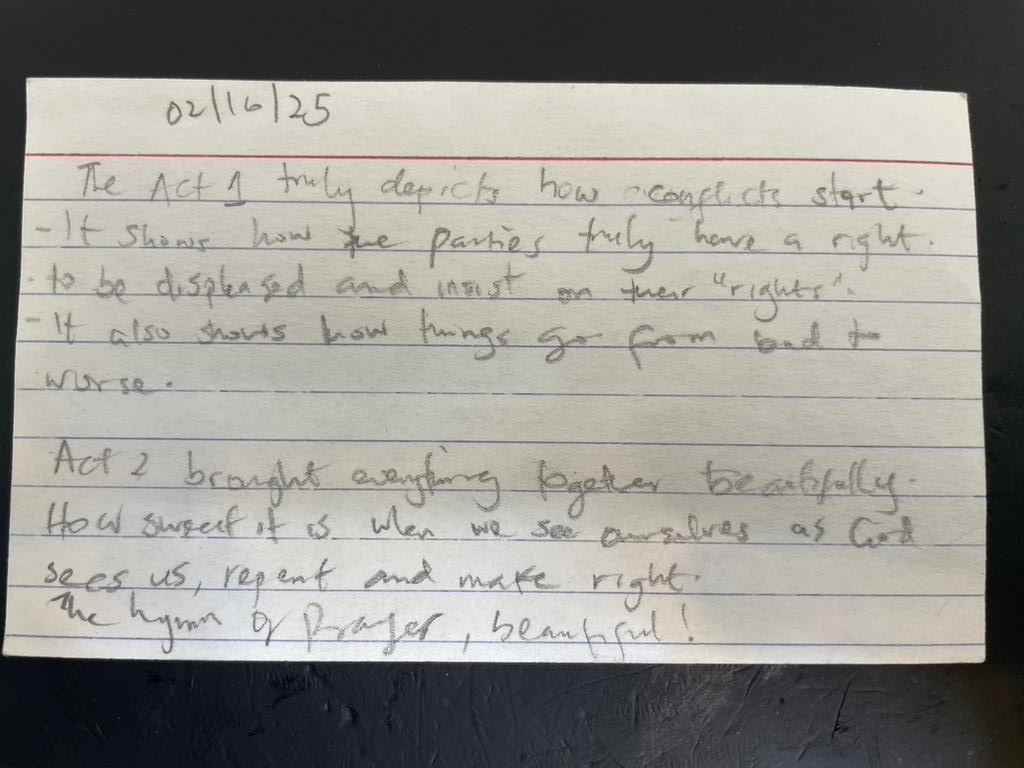 02/16/25
The Act 1 truly depicts how conflicts start.
- It shows how the parties truly have a right.
to be displeased and insist on their "rights".
- It also shows how things go from bad to
worse.
Act 2 brought everything together beautifully.
How sweet it is when we see ourselves as God
sees us, repent and make right.
The hymn of Prayer, beautiful!